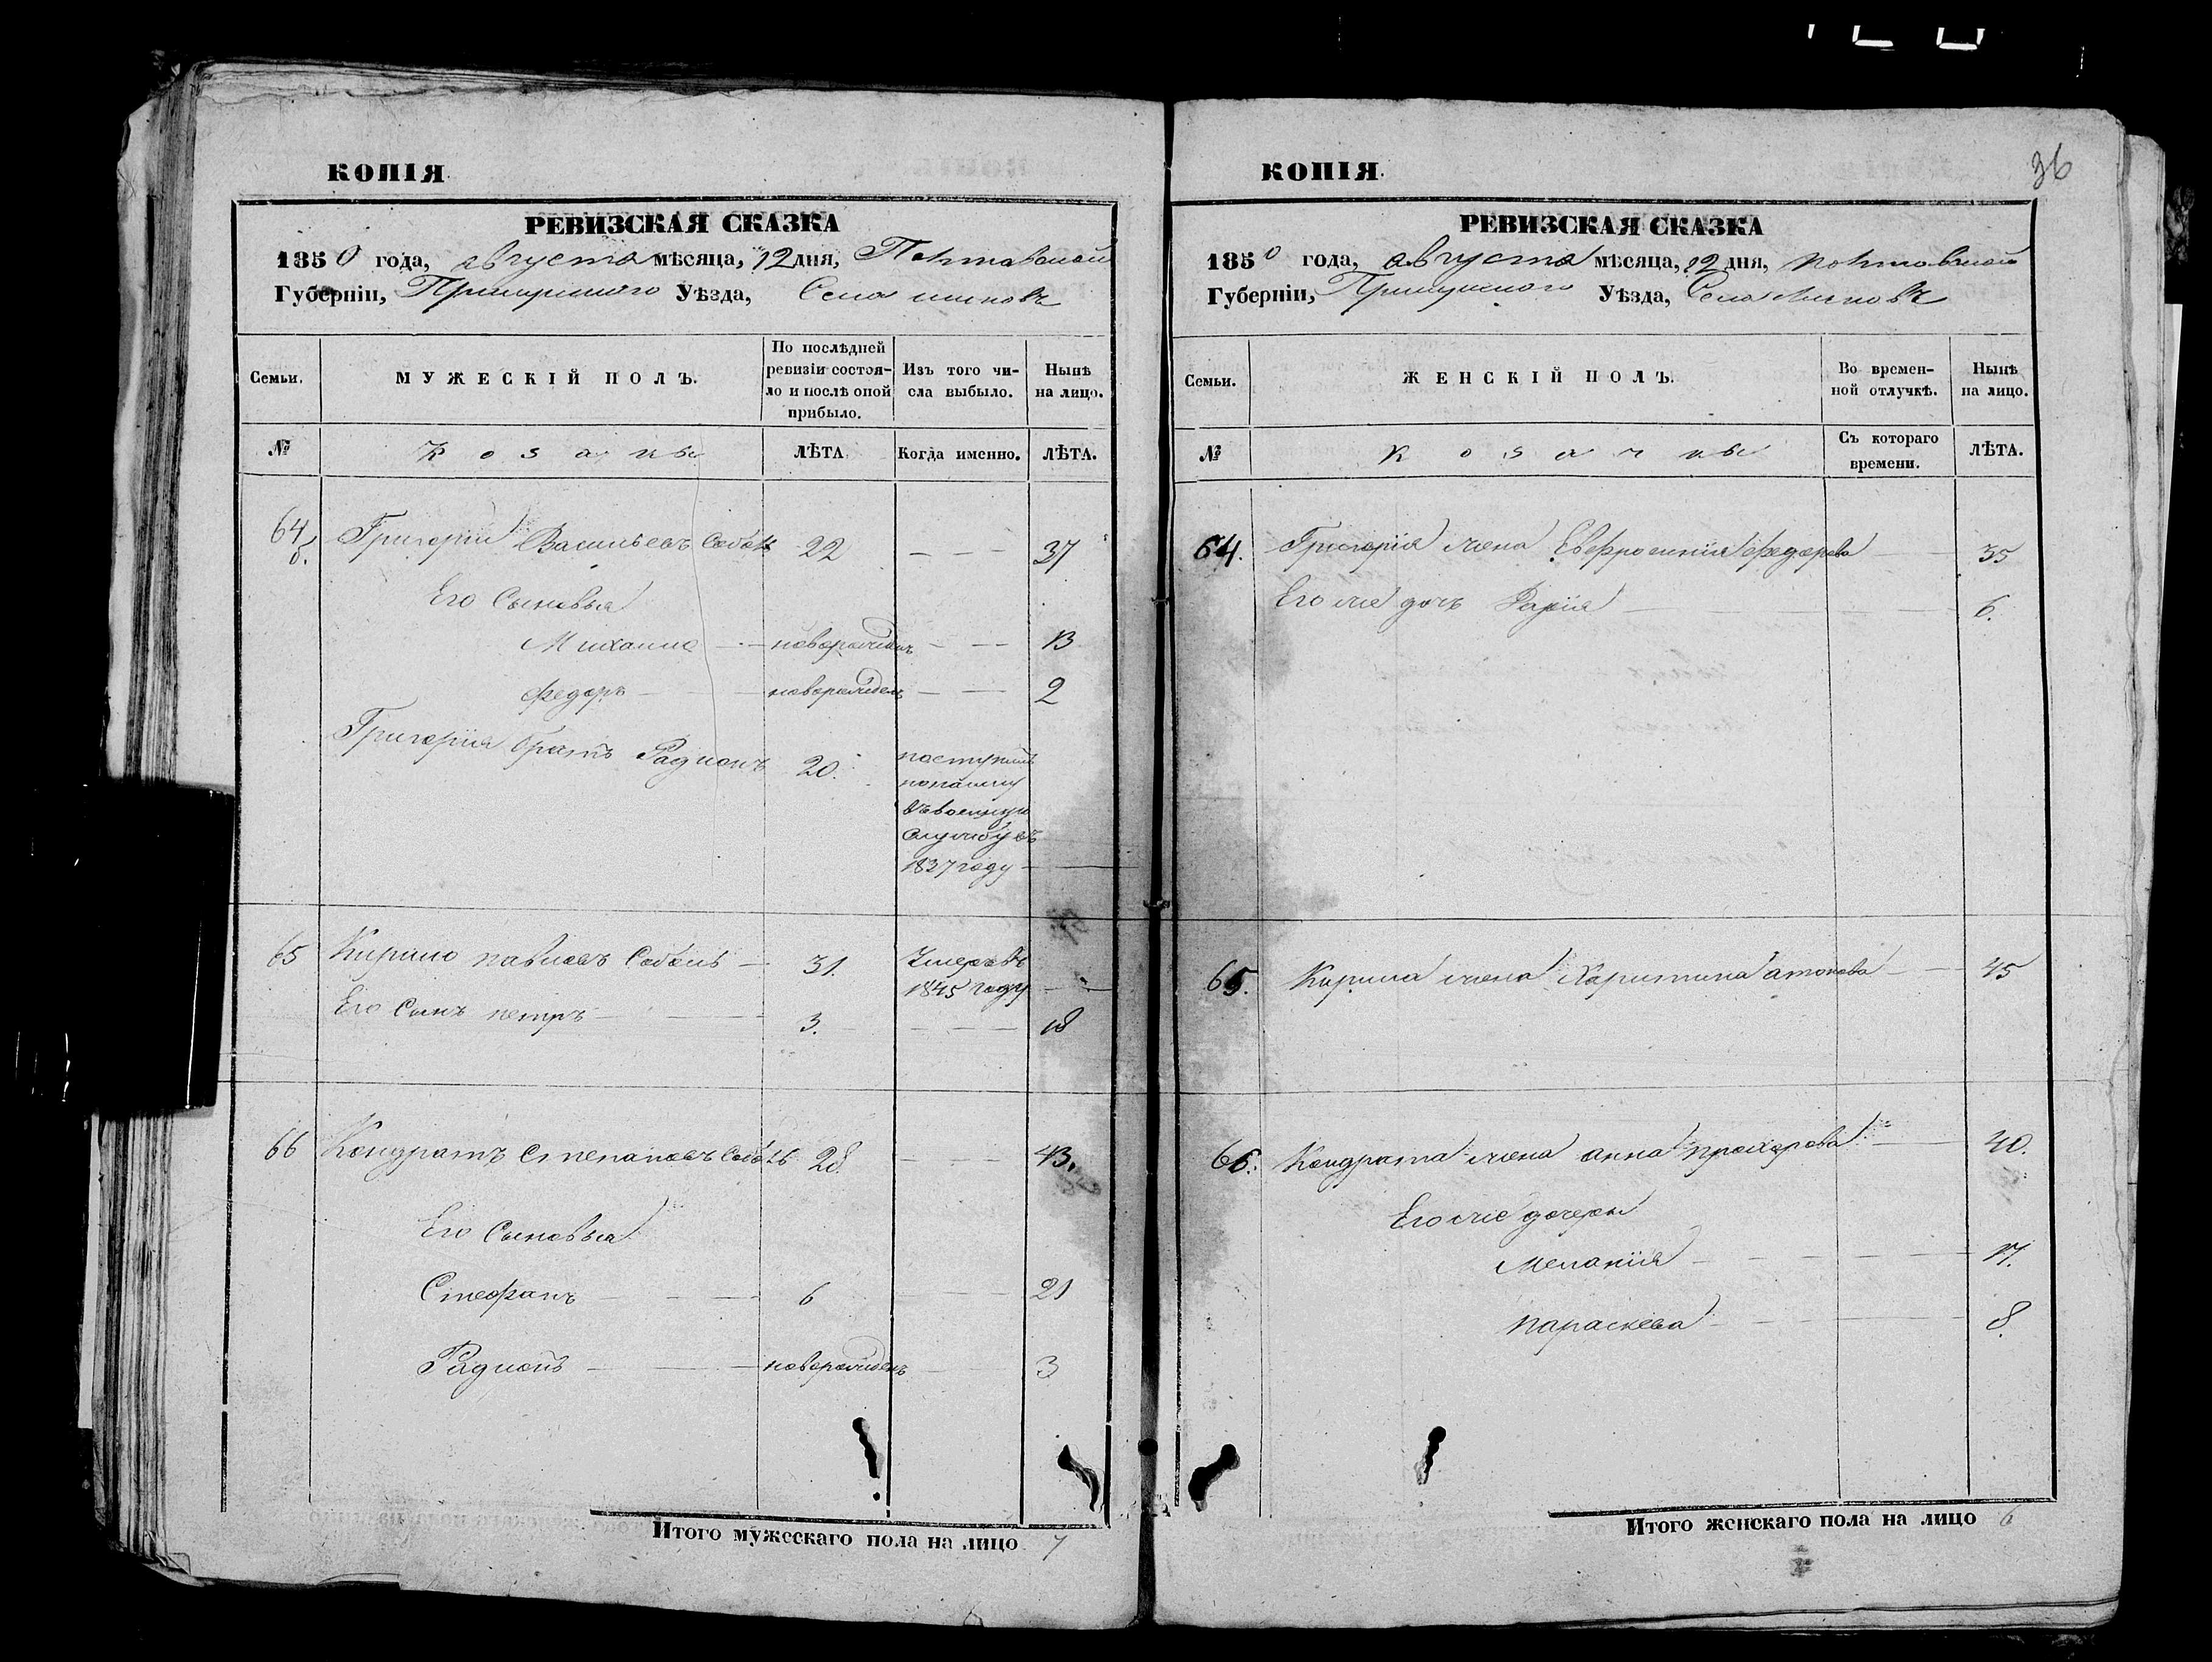 КОПІЯ
РЕВИЗСКАЯ СКАЗКА
1850 года, августа мѣсяца, 12 дня, Полтавской
Губерніи, Прилуцкого Уѣзда, Села
Семьи. МУЖЕСКІЙ ПОЛЪ. По послѣдней ревизіи состояло и послѣ оной прибыло. Изъ того числа выбыло. Нынѣ на лицо.
№ Козаки ЛѢТА. Когда именно. ЛѢТА.
64 Григорій Васильевъ Соболь 22 — — — 37
8.
Его Сыновья
Михаило — — новорожденъ — — 13
Федоръ — — новорожденъ — — 2
Григорія братъ Радионъ 20. поступилъ
по найму
въ военную
службу въ
1837 году —
65 Кирило павловъ Соболь — 31. Умеръ въ
1845 году —
Его Сынъ петръ — — 3. — — — 18
66 Кондратъ степановъ Соболь 28 — — — 43.
Его Сыновья
Стефанъ — — — 6 — — 21
Радионъ — — — новорожденъ — — 3
Итого мужескаго пола на лицо 7
КОПІЯ.
36
РЕВИЗСКАЯ СКАЗКА
1850 года, августа мѣсяца, 12 дня, полтавской
Губерніи, Прилуцкого Уѣзда, Села
Семьи. ЖЕНСКІЙ ПОЛЪ. Во временной отлучкѣ. Нынѣ на лицо.
№ Козачки Съ котораго времени. ЛѢТА.
64. Григорія жена Евфросинія федорова — — 35
Его же дочь — — — 6.
65. Кирила жена Харитина антонова — — 45
66. Кондрата жена анна прохорова — — 40.
Его же дочеры
Меланія — — — — 17.
параскева — — — — 8.
Итого женскаго пола на лицо 6